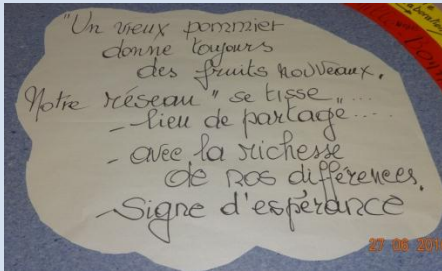 "Un vieux pommier
donne toujours
des fruits nouveaux.
Notre réseau "se tisse"....
- lieu de partage.....
- avec la richesse
de nos différences.
- Signe d'espérance